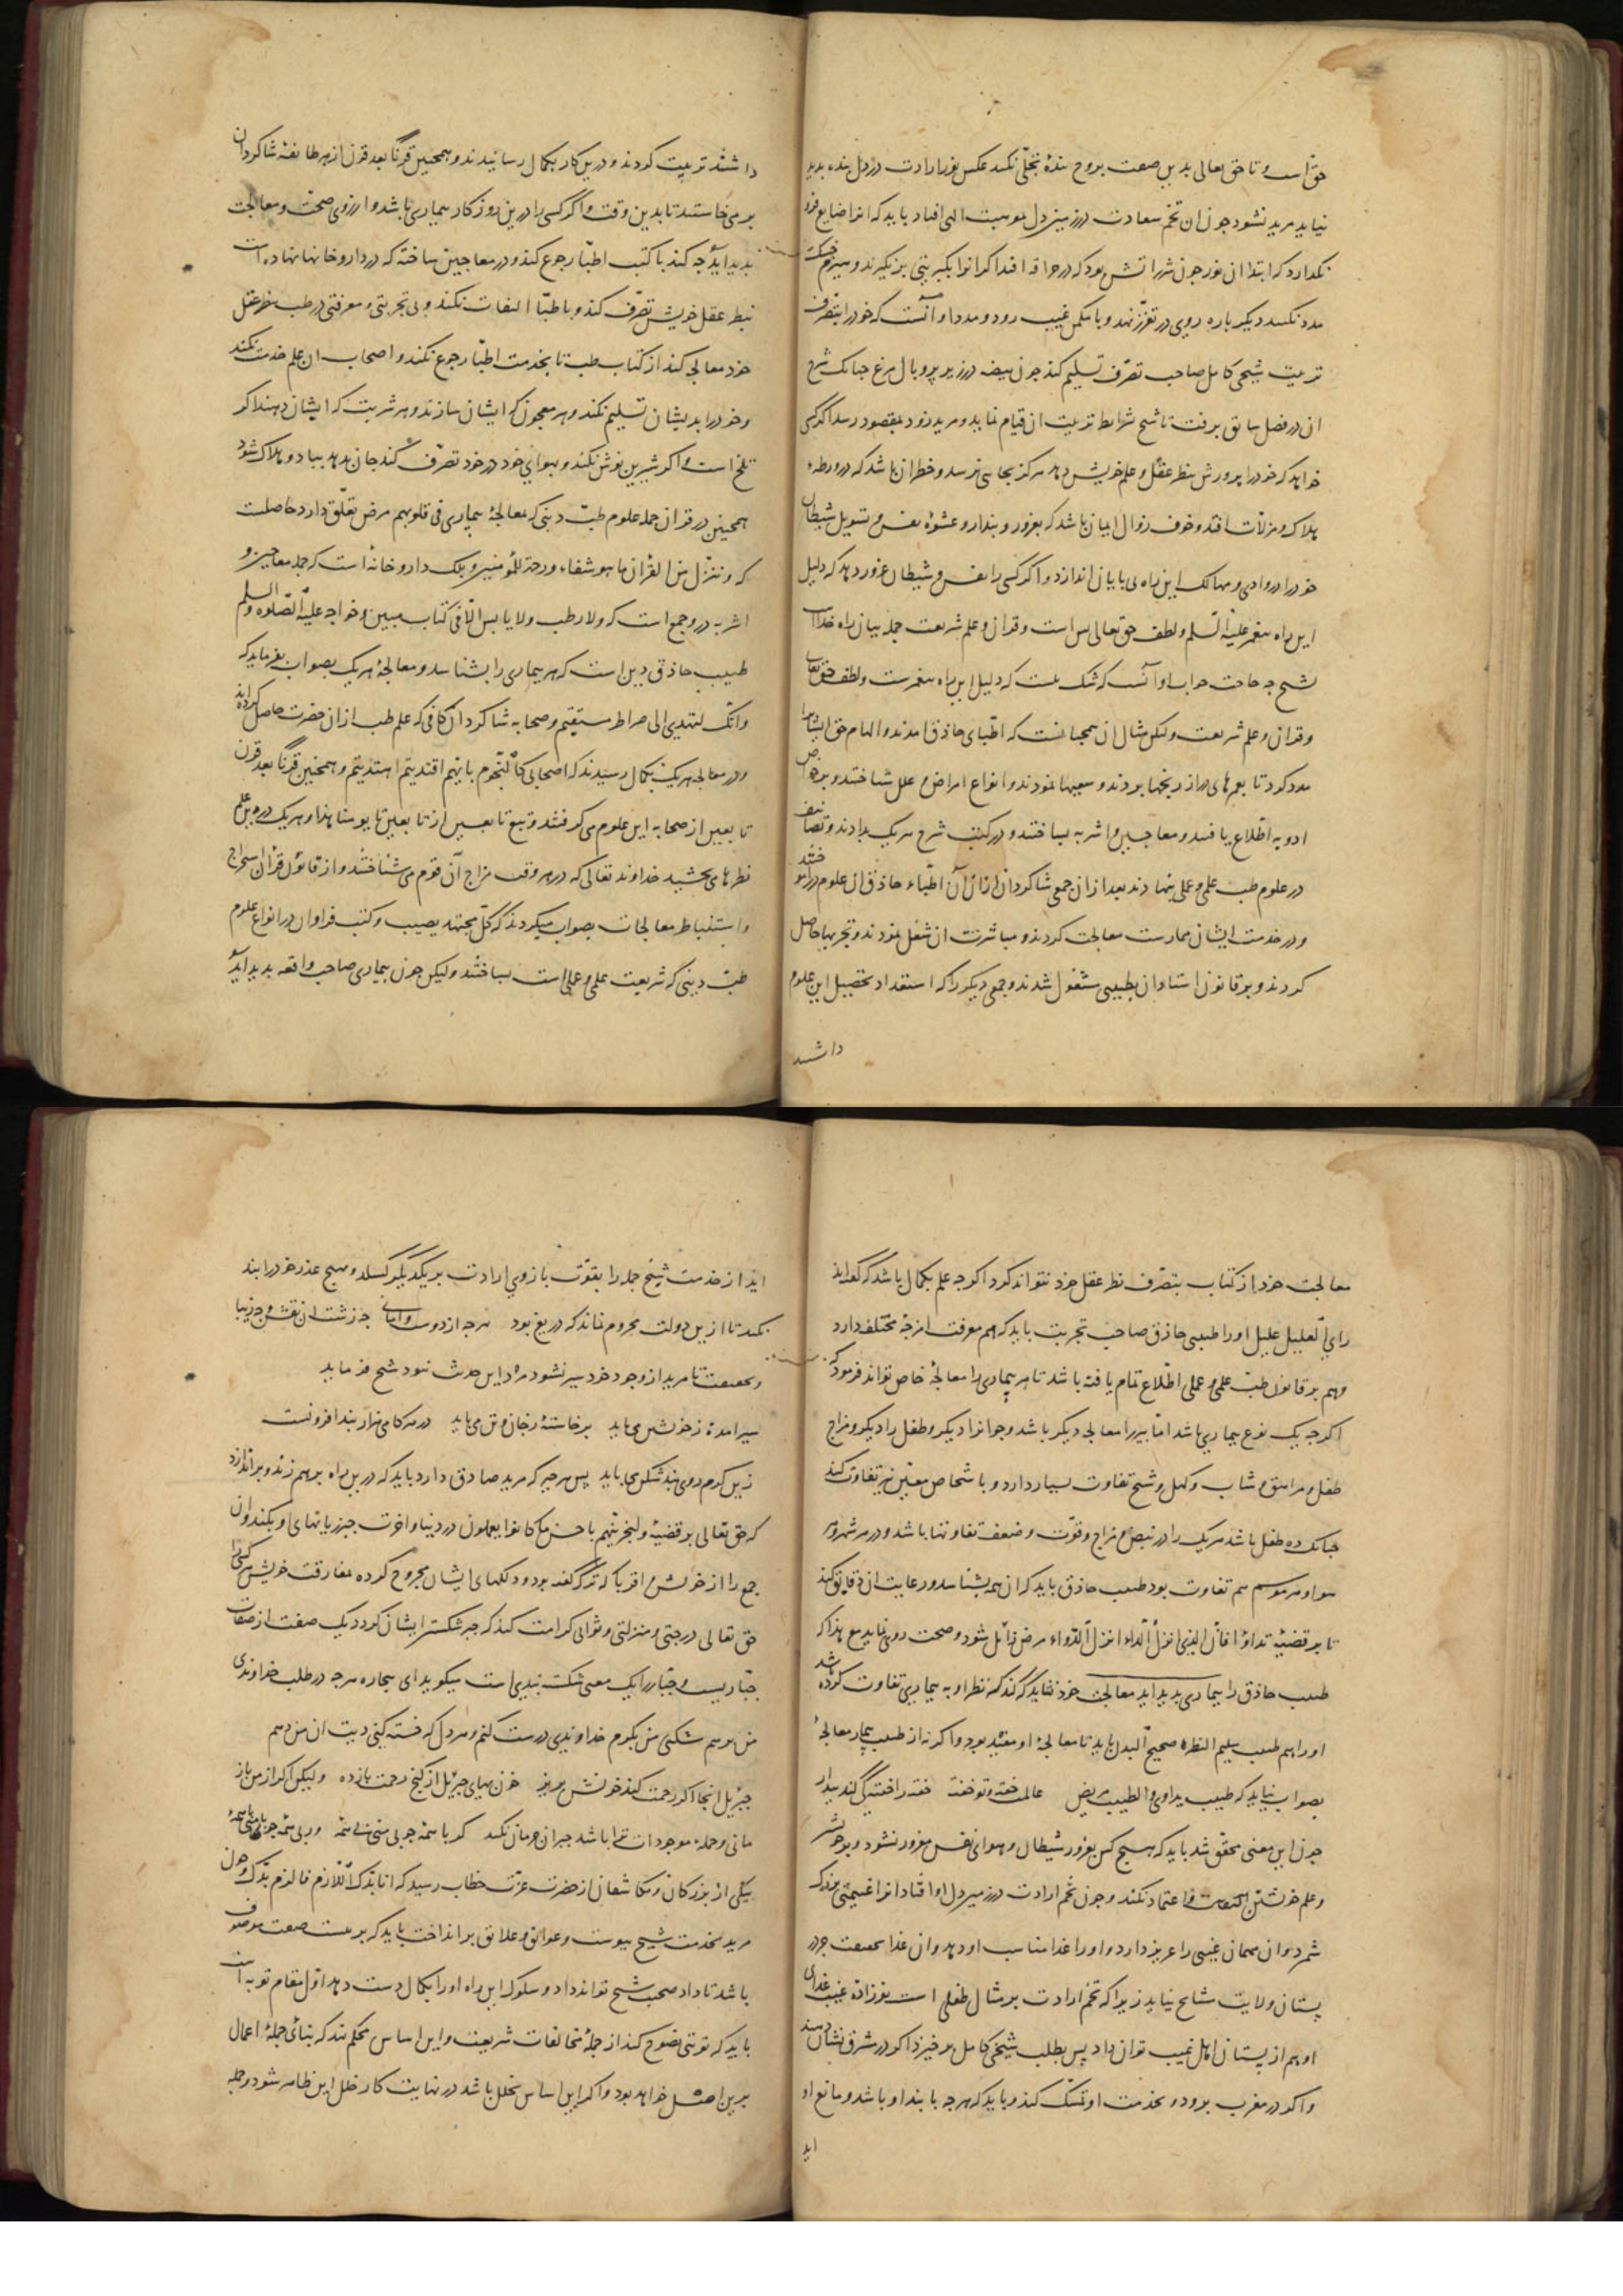 حق است و تا حق تعالی بدین صفت بروح بندۀ تجلّی نکند عکس نور ارادت در دل بنده بدید
نیاید مرید نشود چون ان تخم سعادت در زمین دل بموهبت الهی افتاد باید که انرا ضایع فرو
نکدارد که ابتدا ان نور چون شرر اتش بود که در حراقه افتد اکر انرا بکبریتی برنکیرند و بهیزم خشک
مدد نکنند دیکر باره روی در تعزّز نهد و با مکمن غیب رود و مدد او آنست که خود را بتصرف
تربیت شیخی کامل صاحب تصرّف تسلیم کند چون بیضه در زیر پر و بال مرغ چنانک شرح
ان در فصل سابق برفت تا شیخ شرایط تربیت ان قیام نماید و مرید زود بمقصود رسد اکر کسی
خواهد که خود را پرورش بنظر عقل و علم خویش دهد هرکز بجایی نرسد و خطر ان باشد که در ورطه
هلاک و مزلّات افتد و خوف زوال ایمان باشد که بغرور و پندار و عشوۀ نفس و تسویل شیطان
خود را در وادی و مهالک این راه بی پایان اندازد و اکر کسی را نفس و شیطان غرور دهد که دلیل
این راه پیغمبر علیه السلم و لطف حق تعالی بس است و قران و علم شریعت جمله بیان راه خداست
شیخ چه حاجت جواب او آنست که شک نیست که دلیل این راه پیغمبرست و لطف حق تعالی
و قران و علم شریعت ولیکن مثال ان همچنانست که اطبّای حاذق امدند و الهام حق ایشانرا
مدد کرد تا بعمرهای دراز رنجها بردند و سعیها نمودند و انواع امراض و علل شناختند و بر خواص
ادویه اطّلاع یافتند و معاجین و اشربه بساختند و در کتب شرح هریک بدادند و تصانیف
در علوم طب علمی و عملی بنهادند بعد از ان جمعی شاکردان از ان آن اطبّاء حاذق ان علوم در اموختند
و در خدمت ایشان ممارست معالجت کردند و مباشرت ان شغل نمودند و تجربها حاصل
کردند و بر قانون استادان بطبیبی مشغول شدند و جمعی دیکر را که استعداد تحصیل این علوم
داشتند
داشتند تربیت کردند و درین کار بکمال رسانیدند و همچنین قرنًا بعد قرن از هر طایفه شاکردان
برمی خاستند تا بدین وقت و اکر کسی را درین روزکار بیماری باشد و ارزوی صحّت و معالجت
بدید آید چه کند با کتب اطبّا رجوع کند و در معاجین ساخته که در داروخانها نهاده است
بنظر عقل خویش تصرّف کند و با طبّا التفات نکند و بی تجربتی و معرفتی در طب بنظر عقل
خود معالجه کند از کتاب طب تا بخدمت اطبّا رجوع نکند و اصحاب ان علم خدمت نکند
و خود را بدیشان تسلیم نکند و هر معجون که ایشان سازند و هر شربت که ایشان دهند اکر
تلخ است و اکر شیرین نوش نکند و بهوای خود در خود تصرّف کند جان بدهد بباد و هلاک شود
همچنین در قران جمله علوم طبّ دینی که معالجۀ بیماری فی قلوبهم مرض تعلّق دارد حاصلست
که و ننزل من القرآن ما هو شفاء و رحمة للمؤمنین و بلک داروخانه است که جمله معاجین و
اشربه درو جمع است که ولا رطب ولا یابس الّا فی کتاب مبین و خواجه علیه الصّلوة والسلم
طبیب حاذق دین است که هر بیماری را بشناسد و معالجۀ هریک بصواب بفرماید که
وانّک لتهدی الی صراط مستقیم و صحابه شاکردان کافی که علم طب از ان حضرت حاصل کرده اند
و در معالجه هریک بکمال رسیدند که اصحابی کالنّجوم بایّهم اقتدیتم اهتدیتم و همچنین قرنًا بعد قرن
تابعین از صحابه این علوم می کرفتند و تبع تابعین از تابعین تا یومنا هذا و هریک درین علم
نظرهای بخشید خداوند تعالی که در هر وقت مزاج آن قوم می شناختند و از قانون قرآن استخراج
و استنباط معالجات بصواب میکردند که کلّ مجتهد یصیب و کتب فراوان در انواع علوم
طبّ دینی که شریعت علمی و عملی است بساختند ولیکن چون بیماری صاحب واقعه بدید آید
معالجت خود از کتاب بتصرّف نظر عقل خود نتواند کرد اکرچه علم بکمال باشد که کفته اند
رای العلیل علیل او را طبیبی حاذق صاحب تجربت باید که هم معرفت امزجۀ مختلف دارد
و هم بر قانون طبّ علمی و عملی اطّلاع تمام یافته باشد تا هر بیماری را معالجۀ خاص تواند فرمود که
اکرچه یک نوع بیماری باشد امّا پیر را معالجه دیکر باشد و جوانرا دیکر و طفل را دیکر و مزاج
طفل و مراهق و شاب و کهل و شیخ تفاوت بسیار دارد و باشخاص معیّن نیز تفاوت کند
چنانک ده طفل باشد هریک را در نبض و مزاج و قوّت و ضعف تفاوتها باشد و در هر شهر و هر
هوا و هر موسم هم تفاوت بود طبیب حاذق باید که ان همه بشناسد و رعایت ان دقایق کند
تا بر قضیّه تداووا فانّ الّذی انزل الدّاء انزل الدّواء مرض زائل شود و صحت روی نماید مع هذا که
طبیب حاذق را بیماری بدید آید معالجت خود نشاید که کند که نظر او به بیماری تفاوت کرده باشد
او را هم طبیب سلیم النظرۀ صحیح البدن باید تا معالجۀ او مفید بود و اکر نه از طبیب بیمار معالجۀ
بصواب نیاید که طبیب یداوی والطبیب مریض عالمت خفته و تو خفته خفته را خفته کی کند بیدار
چون این معنی محقّق شد باید که هیچ کس بغرور شیطان و هوای نفس مغرور نشود و برخواند
و علم خویشتن التفات و اعتماد نکند و چون تخم ارادت در زمین دل او افتاد انرا غنیمتی بزرک
شمرد و ان مهمان غیبی را عزیز دارد و او را غذا مناسب او دهد و ان غذا بحقیقت جز در
پستان ولایت مشایخ نیابد زیرا که تخم ارادت بر مثال طفلی است نوزاده غیب غذای
او هم از پستان اهل غیب توان داد پس بطلب شیخی کامل برخیزد اکر در مشرق نشان دهند
و اکر در مغرب برود و بخدمت او تمسّک کند و باید که هرچه پابند او باشد و مانع او
اید
اید از خدمت شیخ جمله را بقوّت بازوی ارادت بر یکدیکر کسلد و هیچ عذر خود را بند
نکند تا ازین دولت محروم نماند که دریغ بود هرچه از دوست وامانی چه زشت ان نقش و چه زیبا
و بحقیقت تا مرید از وجود خود سیر نشود مرد این حدیث نبود شیخ فرماید
سیر امدۀ ز خویشتن می باید برخاستۀ ز جان و تن می باید در هر کامی هزار بند افزونست
زین کرم روی بند شکن می باید پس هرچه که مرید صادق دارد باید که درین راه برهم زند و براندازد
که حق تعالی بر قضیّۀ ولنجزینهم باحسن ما کانوا یعملون در دنیا و اخرت جبر زیانهای او بکند و ان
جمع را از خویش و اقربا که ترک کفته بود و دلهای ایشان مجروح کرده بمفارقت خویش هرکس را
حق تعالی درجتی و منزلتی و ثوابی کرامت کند که جبر شکستن ایشان کردد یک صفت از صفات
جبّاریست و جبّار را یک معنی شکسته بندی است میکوید ای بیچاره هرچه در طلب خداوندی
من برهم شکنی من بکرم خداوندی درست کنم و هر دل که خسته کنی دیت ان من دهم
جبریل انجا اکر زحمت کند خونش بریز خون بهای جبریل از کنج رحمت بازده ولیکن اکر از من باز
مانی و جمله موجودات ترا باشد جبران حرمان نکند کر با همۀ چو بی منی بی همۀ ور بی همۀ چو با منی با همۀ
بیکی از بزرکان و مکاشفان از حضرت عزّت خطاب رسید که انا بدّک اللّازم فالزم بدّک و چون
مرید بخدمت شیخ پیوست و عوایق و علایق برانداخت باید که بر بیست صفت موصوف
باشد تا داد صحبت شیخ تواند داد و سلوک این راه او را بکمال دست دهد اوّل مقام توبه است
باید که توبتی نصوح کند از جملۀ مخالفات شریعت و این اساس محکم نهد که بنای جملۀ اعمال
برین اصل خواهد بود و اکر این اساس بخلل باشد در نهایت کار خلل این ظاهر شود و جمله